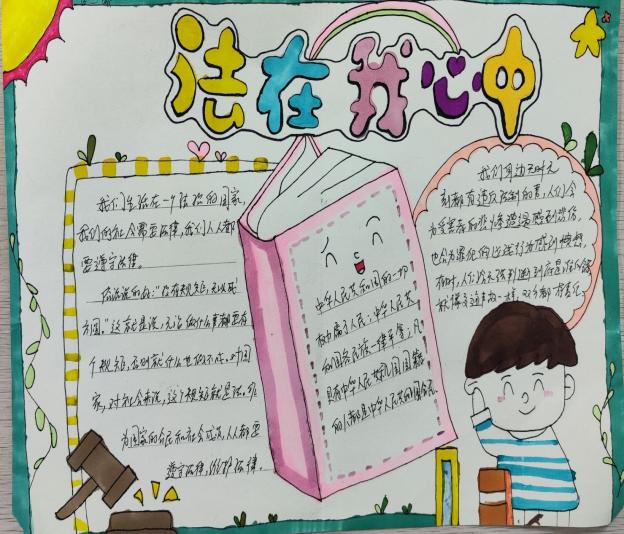 法在我心中
我们生活在一个法治的国家,
我们的社会需要法律,我们人人都
要遵守法律。
俗话说的好:"没有规矩,无以成
方圆。"这就是说,无论做什么事都要有
个规矩,否则就什么也做不成。对国
家,对社会来说,这个规矩就是法。身
为国家的公民和社会成员,人人都要
遵守法律,维护法律。
中华人民共和国的一切
权力属于人民;中华人民共
和国各民族一律平等;凡
具有中华人民共和国国籍
的人都是中华人民共和国公民。
我们身边无时无
刻都有违反法制的事,人们会
为受害者的悲惨遭遇感到悲伤,
也会为罪犯的
感到愤怒,
有时,人们